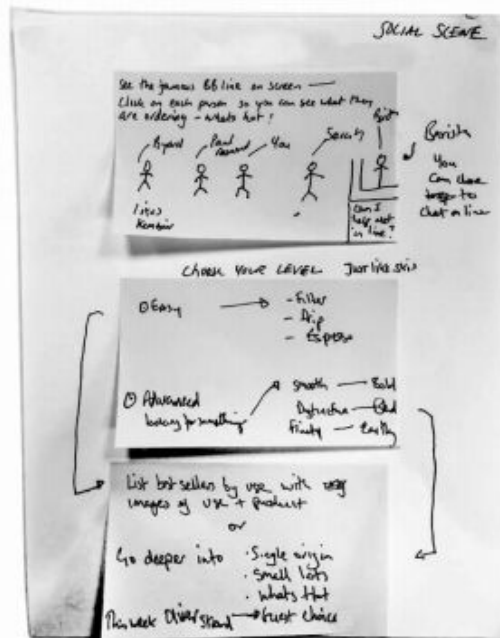 SOCIAL SCENE
See the famous BB line on screen
Click on each person so you can see what they
are ordering - whats hot!
Byard
Paul
You
Sarah
Barista
You
Can
to
chat online
likes
Can I
help
in line?
CHOOSE YOUR LEVEL Just like skis
Easy
- Filter
- Drip
- Espresso
Advanced
looking for something
Smooth — Bold
Fruity — Earthy
List best sellers by use with
images of use + product
or
Go deeper into
• Single origin
• Small lots
• Whats Hot
This week Oliver Strand → Guest choice